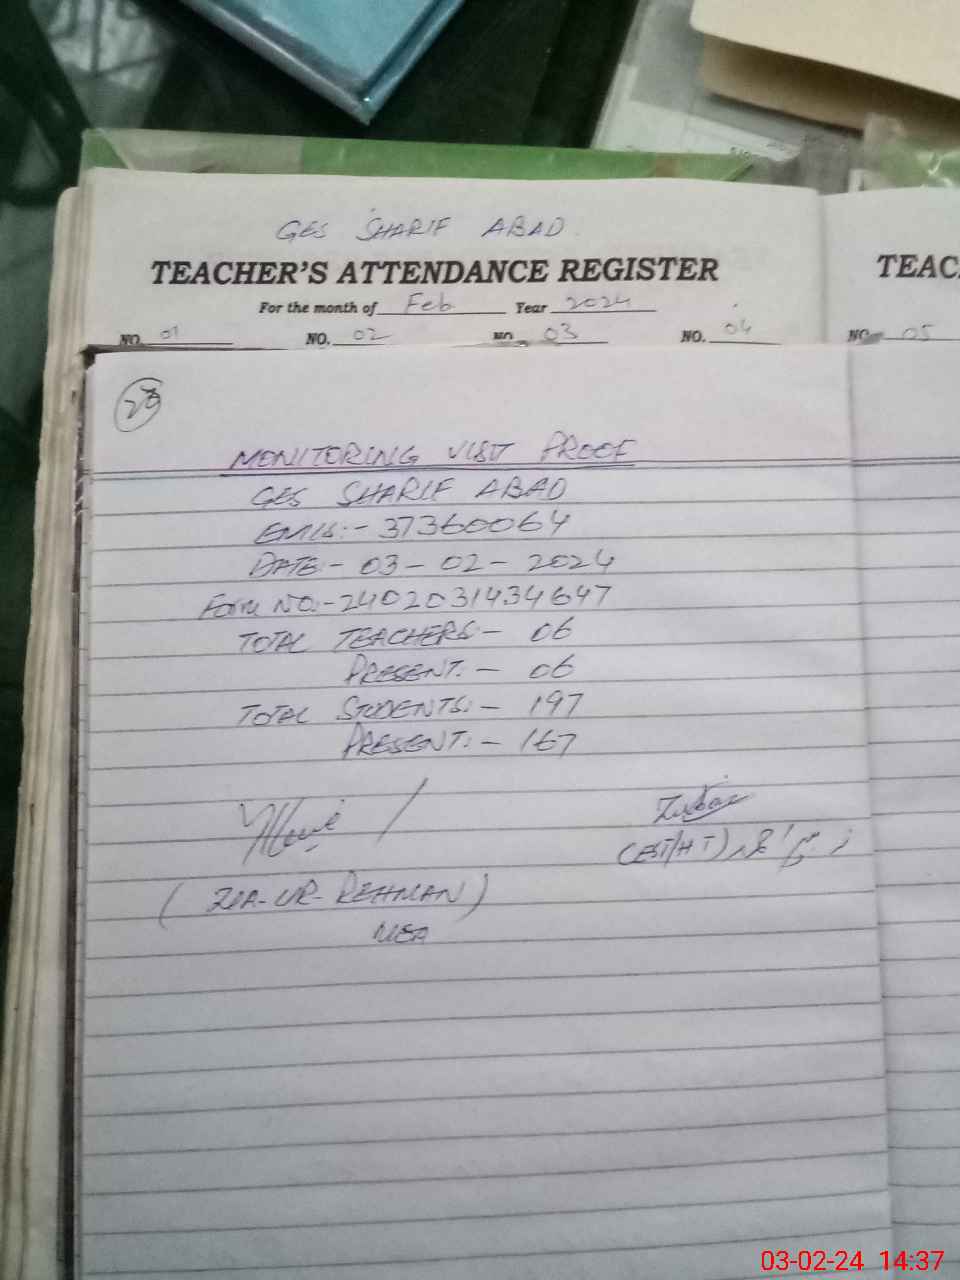 GES SHARIF ABAD
TEACHER'S ATTENDANCE REGISTER
TEAC
For the month of Feb Year 2024
NO. 01 NO. 02 NO. 03 NO. 04 NO. 05
28
MONITORING VISIT PROOF
GES SHARIF ABAD
EMIS:- 37360064
DATE:- 03-02-2024
Form NO:- 2402031434647
TOTAL TEACHERS:- 06
PRESENT:- 06
TOTAL STUDENTS:- 197
PRESENT:- 167
Zubair
(EST/HT)
(ZIA-UR-REHMAN)
MEA
03-02-24 14:37